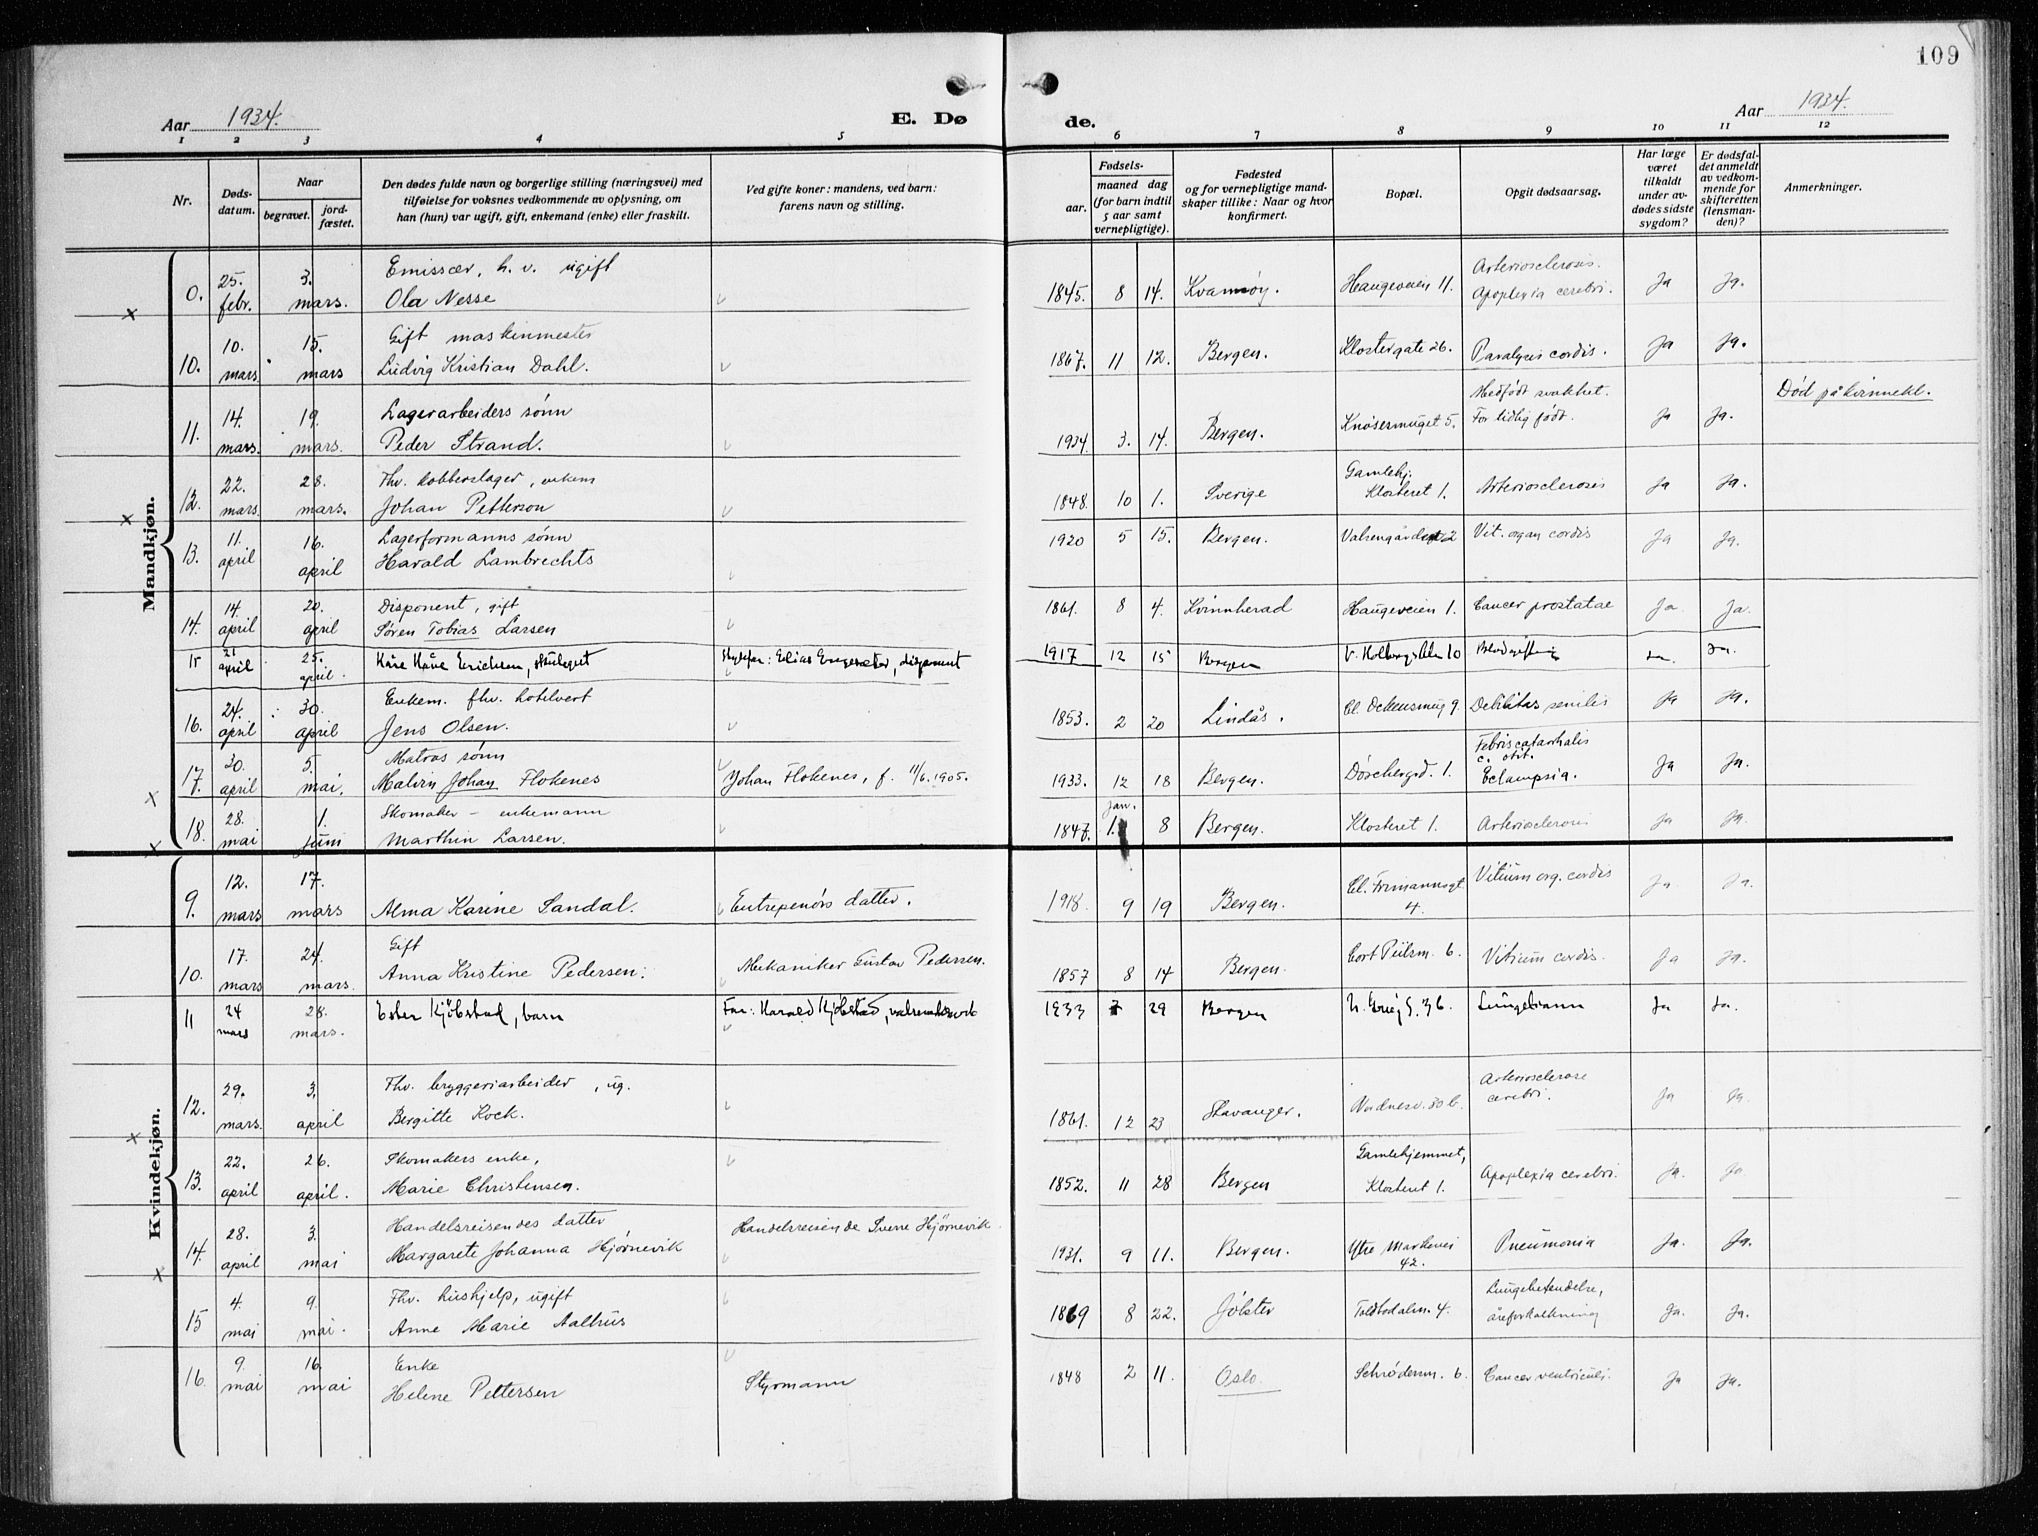 109
Aar 1934.
E. Dø
de.
Aar 1934.
1 2 3 4 5 6 7 8 9 10 11 12
Nr.
Døds-
datum.
Naar
begravet.
jord-
fæstet.
Den dødes fulde navn og borgerlige stilling (næringsvei) med
tilføielse for voksnes vedkommende av oplysning, om
han (hun) var ugift, gift, enkemand (enke) eller fraskilt.
Ved gifte koner: mandens, ved barn:
farens navn og stilling.
Fødsels-
aar.
maaned dag
(for barn indtil
5 aar samt
vernepligtige).
Fødested
og for vernepligtige mand-
skaper tillike: Naar og hvor
konfirmert.
Bopæl.
Opgit dødsaarsag.
Har læge
været
tilkaldt
under av-
dødes sidste
sygdom?
Er dødsfal-
det anmeldt
av vedkom-
mende for
skifteretten
(lensman-
den)?
Anmerkninger.
Mandkjøn.
25. 3. Emissær, h. v. ugift Arteriosclerosis.
0. febr. mars. Ola Nesse 1845. 8 14. Kvamsøy. Haugeveien 11. Apoplexia cerebri. Ja Ja.
10. 15. Gift maskinmester
10. mars. mars Ludvig Kristian Dahl. 1867. 11 12. Bergen. Klostergate 26. Paralysis cordis. Ja Ja.
14. 19. Lagerarbeiders sønn Medfødt svakhet. Død på kvinnekl.
11. mars. mars. Peder Strand. 1934 3. 14. Bergen. Knøsesmuget 5. For tidlig født. Ja Ja.
22. 28. Fhv. kobberslager, enkem Gamlehj.
12. mars. mars. Johan Petterson 1848. 10 1. Sverige Klosteret 1. Arteriosclerosis Ja Ja.
11. 16. Lagerformanns sønn
13. april april Harald Lambrechts 1920 5 15. Bergen. 2 Vit. organ cordis Ja Ja.
14. 20. Disponent, gift
14. april april Søren Tobias Larsen 1861. 8 4. Kvinnherad Haugeveien 1. Cancer prostatae Ja. Ja.
15 21 april 25. april. Kåre Erichsen, Elias disponent 1917 12 15 Bergen V. 10 Blodgiftning Ja. Ja.
24. 30. Enkem. fhv. hotelvert
16. april april Jens Olsen. 1853. 2 20 Lindås. Cl. Ockensmug 9. Debilitas senilis Ja Ja.
30. 5. Matros sønn Febris catarrhalis
c. otit.
17. april mai. Malvin Johan Flokenes Johan Flokenes, f. 11/6.1905. 1933. 12 18 Bergen. 1. Eclampsia. Ja Ja.
28. 1. Skomaker - enkemann jan.
18. mai juni Marthin Larsen. 1847. 1. 8 Bergen. Klosteret 1. Arteriosclerosis Ja Ja.
Kvindekjøn.
12. 17. Cl. Frimannsgt.
9. mars mars Alma Karine Sandal. Entrepenørs datter. 1918. 9 19 Bergen. 4. Vitium org. cordis Ja. Ja.
17. 24. Gift
10. mars mars. Anna Kristine Pedersen. Mekaniker Gustav Pedersen. 1857 8 14 Bergen. Cort Piilsm. 6. Vitium cordis. Ja Ja.
11 24 mars 28. mars. Ester Kjøbstad, barn Far: Harald Kjøbstad, 1933 7 29 Bergen 36. Lungebrann Ja Ja.
29. 3. Fhv. bryggeriarbeider, ug. Arteriosclerose
12. mars. april Bergitte Kock. 1861. 12 23 Stavanger. Nordnesv. 30 b. cerebri. Ja Ja.
22. 26. Skomakers enke, Gamlehjemmet,
13. april april. Marie Christensen. 1852. 11 28 Bergen Klosteret 1. Apoplexia cerebri. Ja. Ja.
28. 3. Handelsreisendes datter Handelsreisende Sverre Hjørnevik.
14. april mai Margarete Johanna Hjørnevik 1931. 9 11. Bergen. Ytre Markevei 42. Pneumonia Ja. Ja.
4. 9. Fhv. hushjelp, ugift Lungebetendelse,
15 mai mai. Anne Marie Aalhus 1869 8 22. Jølster Toldbodalm. 4. åreforkalkning Ja. Ja.
9. 16. Enke
16. mai mai Helene Pettersen Styrmann 1848 2 11. Oslo. Schrøderm. 6. Cancer ventriculi. Ja Ja.